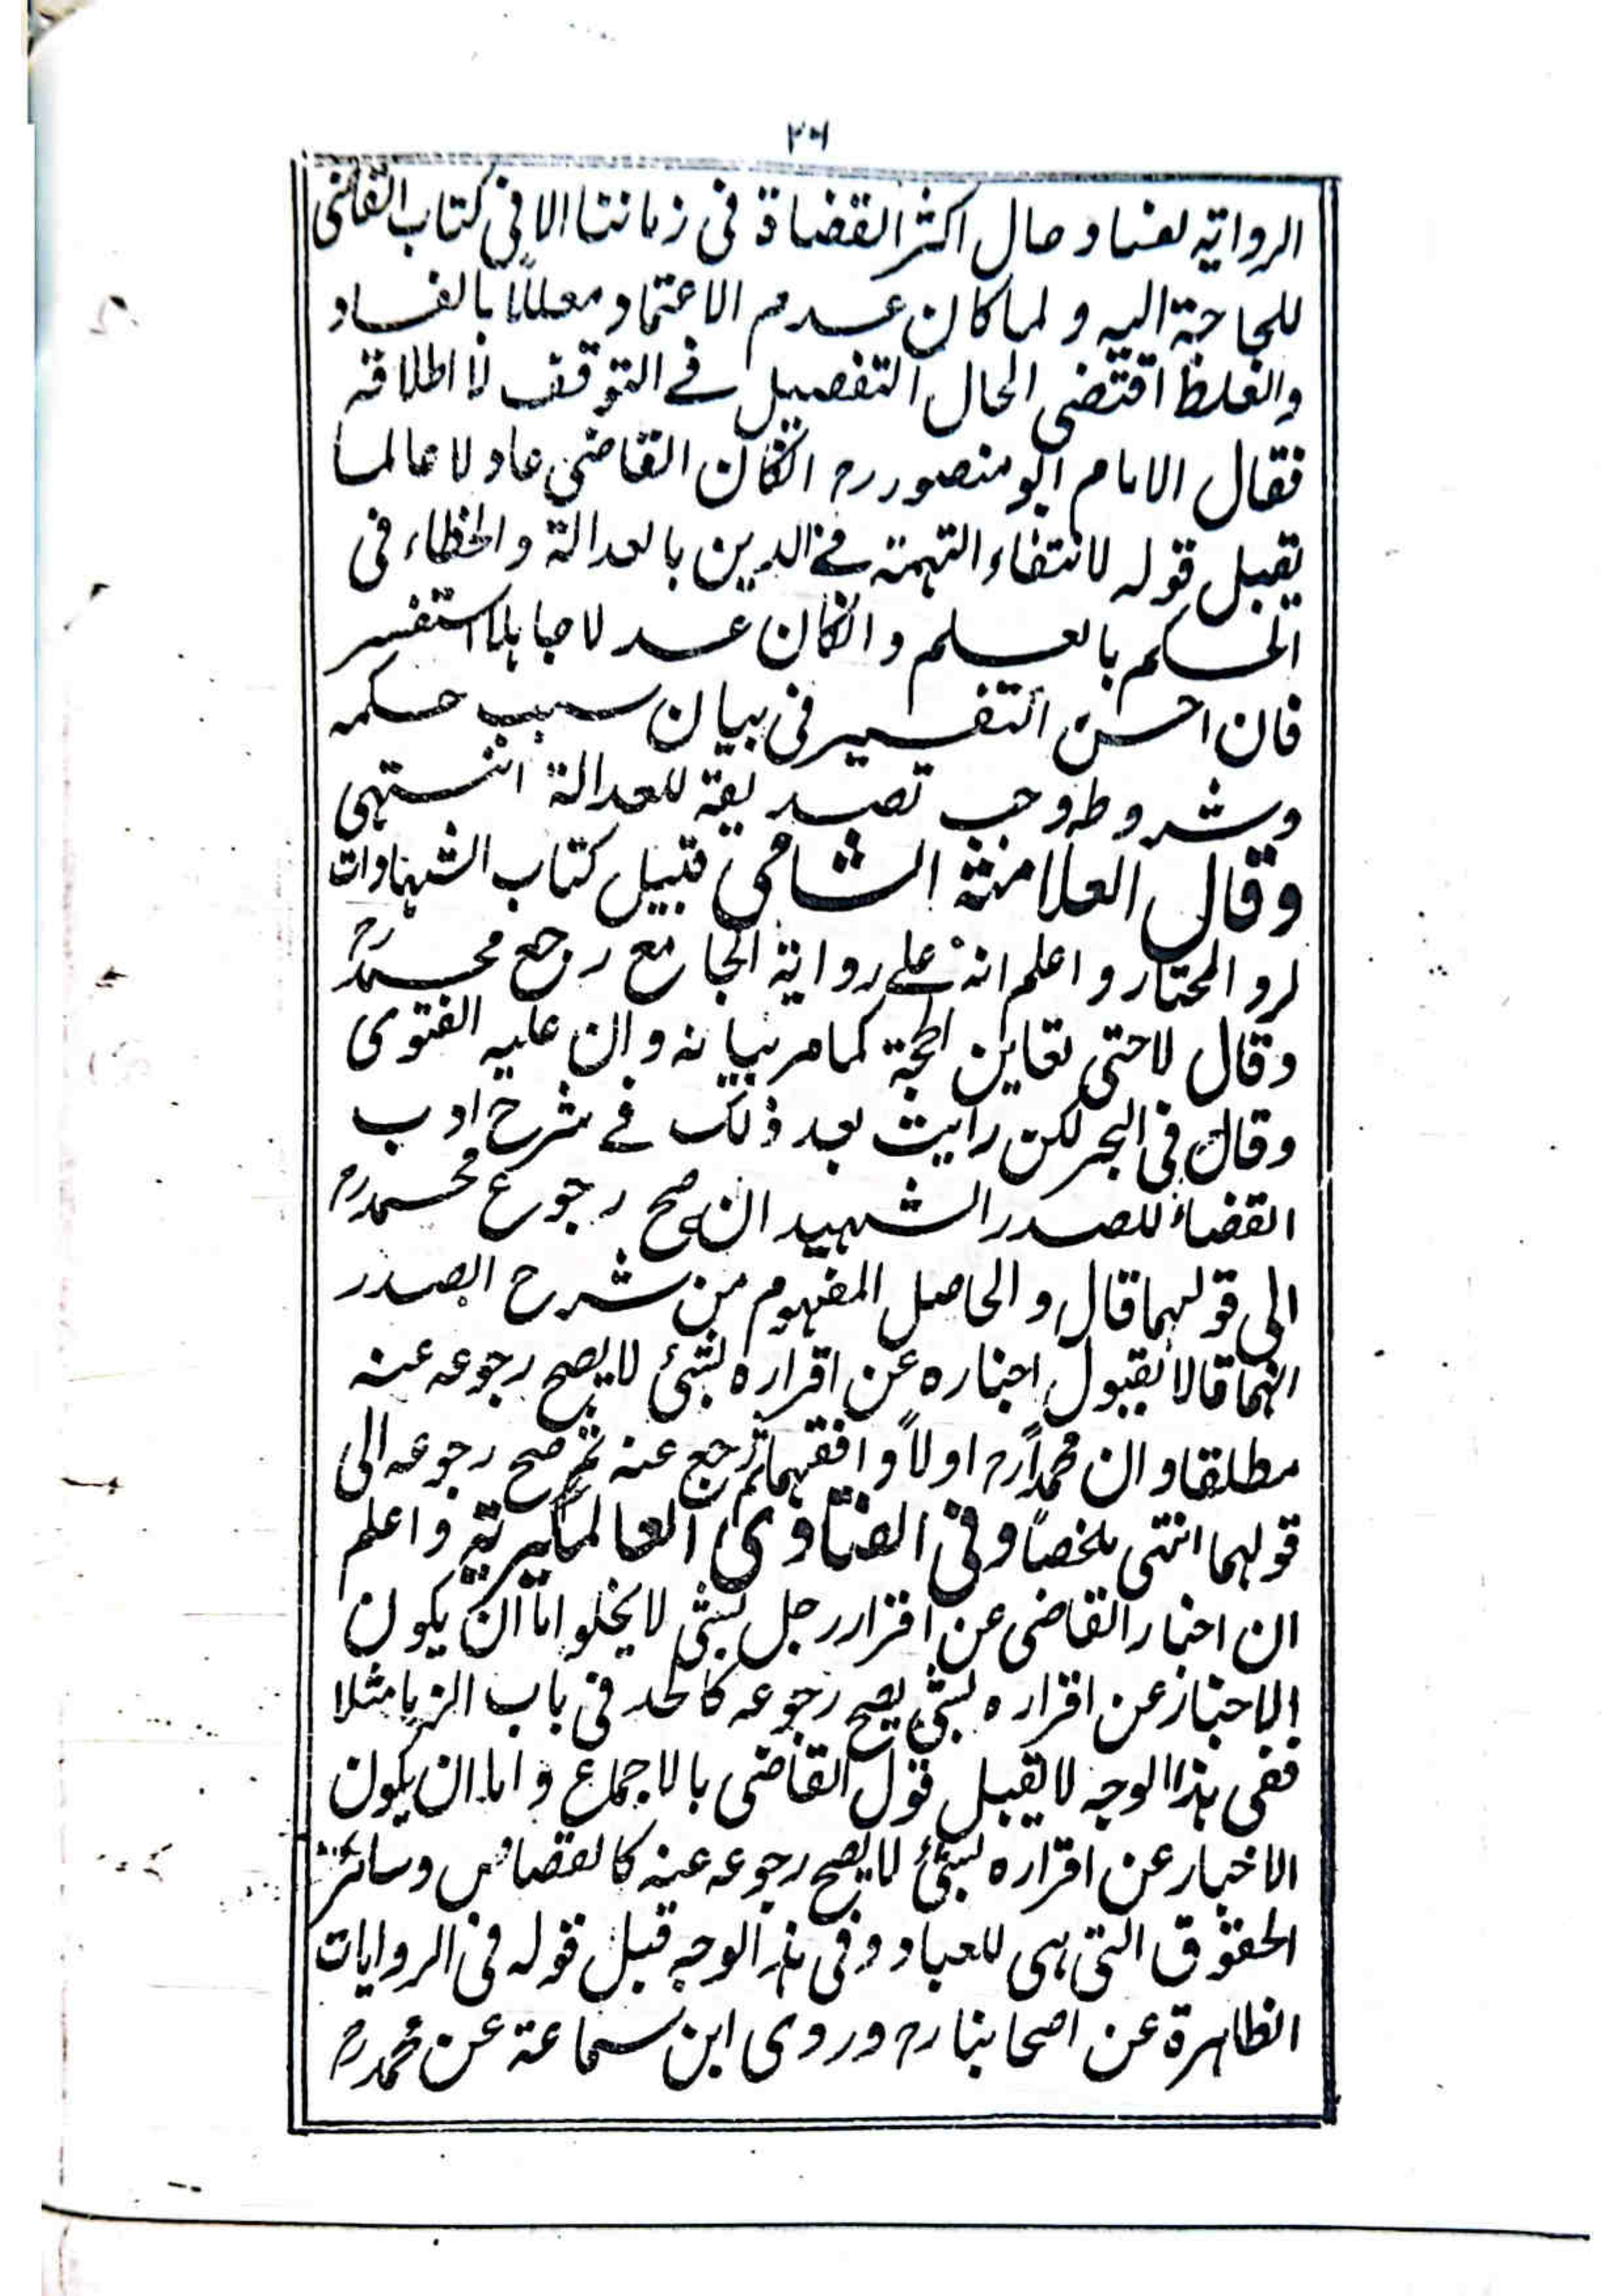 الرواية لفساد حال اكثر القضاة فى زماننا الا فى كتاب القاضى
للحاجة اليه و لما كان عدم الاعتماد معللاً بالفساد
والغلط اقتضى الحال التفصيل فے التوقف لا اطلاقه
فقال الامام ابو منصور رح انكان القاضى عادلا عالما
يقبل قوله لانتفاء التهمة فے الدين بالعدالة والخطاء فى
الحكم بالعلم وانكان عدلا جاهلا استفسر
فان احسن التفسير فى بيان سبب حكمه
وشروطه وجب تصديقه للعدالة انتهى
وقال العلامة الشامى قبيل كتاب الشهادات
لرد المحتار واعلم انه علے رواية الجامع رجع محمد رح
وقال لا حتى تعاين الحجة كمامر بيانه وان عليه الفتوى
وقال فى البحر لكن رايت بعد ذلك فے شرح ادب
القضاء للصدر الشهيد انه صح رجوع محمد رح
الى قولهما قال والحاصل المفهوم من شرح الصدر
انهما قالا بقبول اخباره عن اقراره بشئ لا يصح رجوعه عنه
مطلقا وان محمداً رح اولاً وافقهما ثم رجع عنه ثم صح رجوعه الى
قولهما انتهى ملخصاً وفى الفتاوى العالمكيرية واعلم
ان اخبار القاضى عن اقرار رجل بشئ لا يخلو اما ان يكون
الاخبار عن اقراره بشئ يصح رجوعه كالحد فى باب الزنا مثلا
ففى هذا الوجه لا يقبل قول القاضى بالاجماع واما ان يكون
الاخبار عن اقراره بشئ لا يصح رجوعه عنه كالقصاص وسائر
الحقوق التى هى للعباد وفى هذا الوجه قبل قوله فى الروايات
الظاهرة عن اصحابنا رح وروى ابن سماعة عن محمد رح